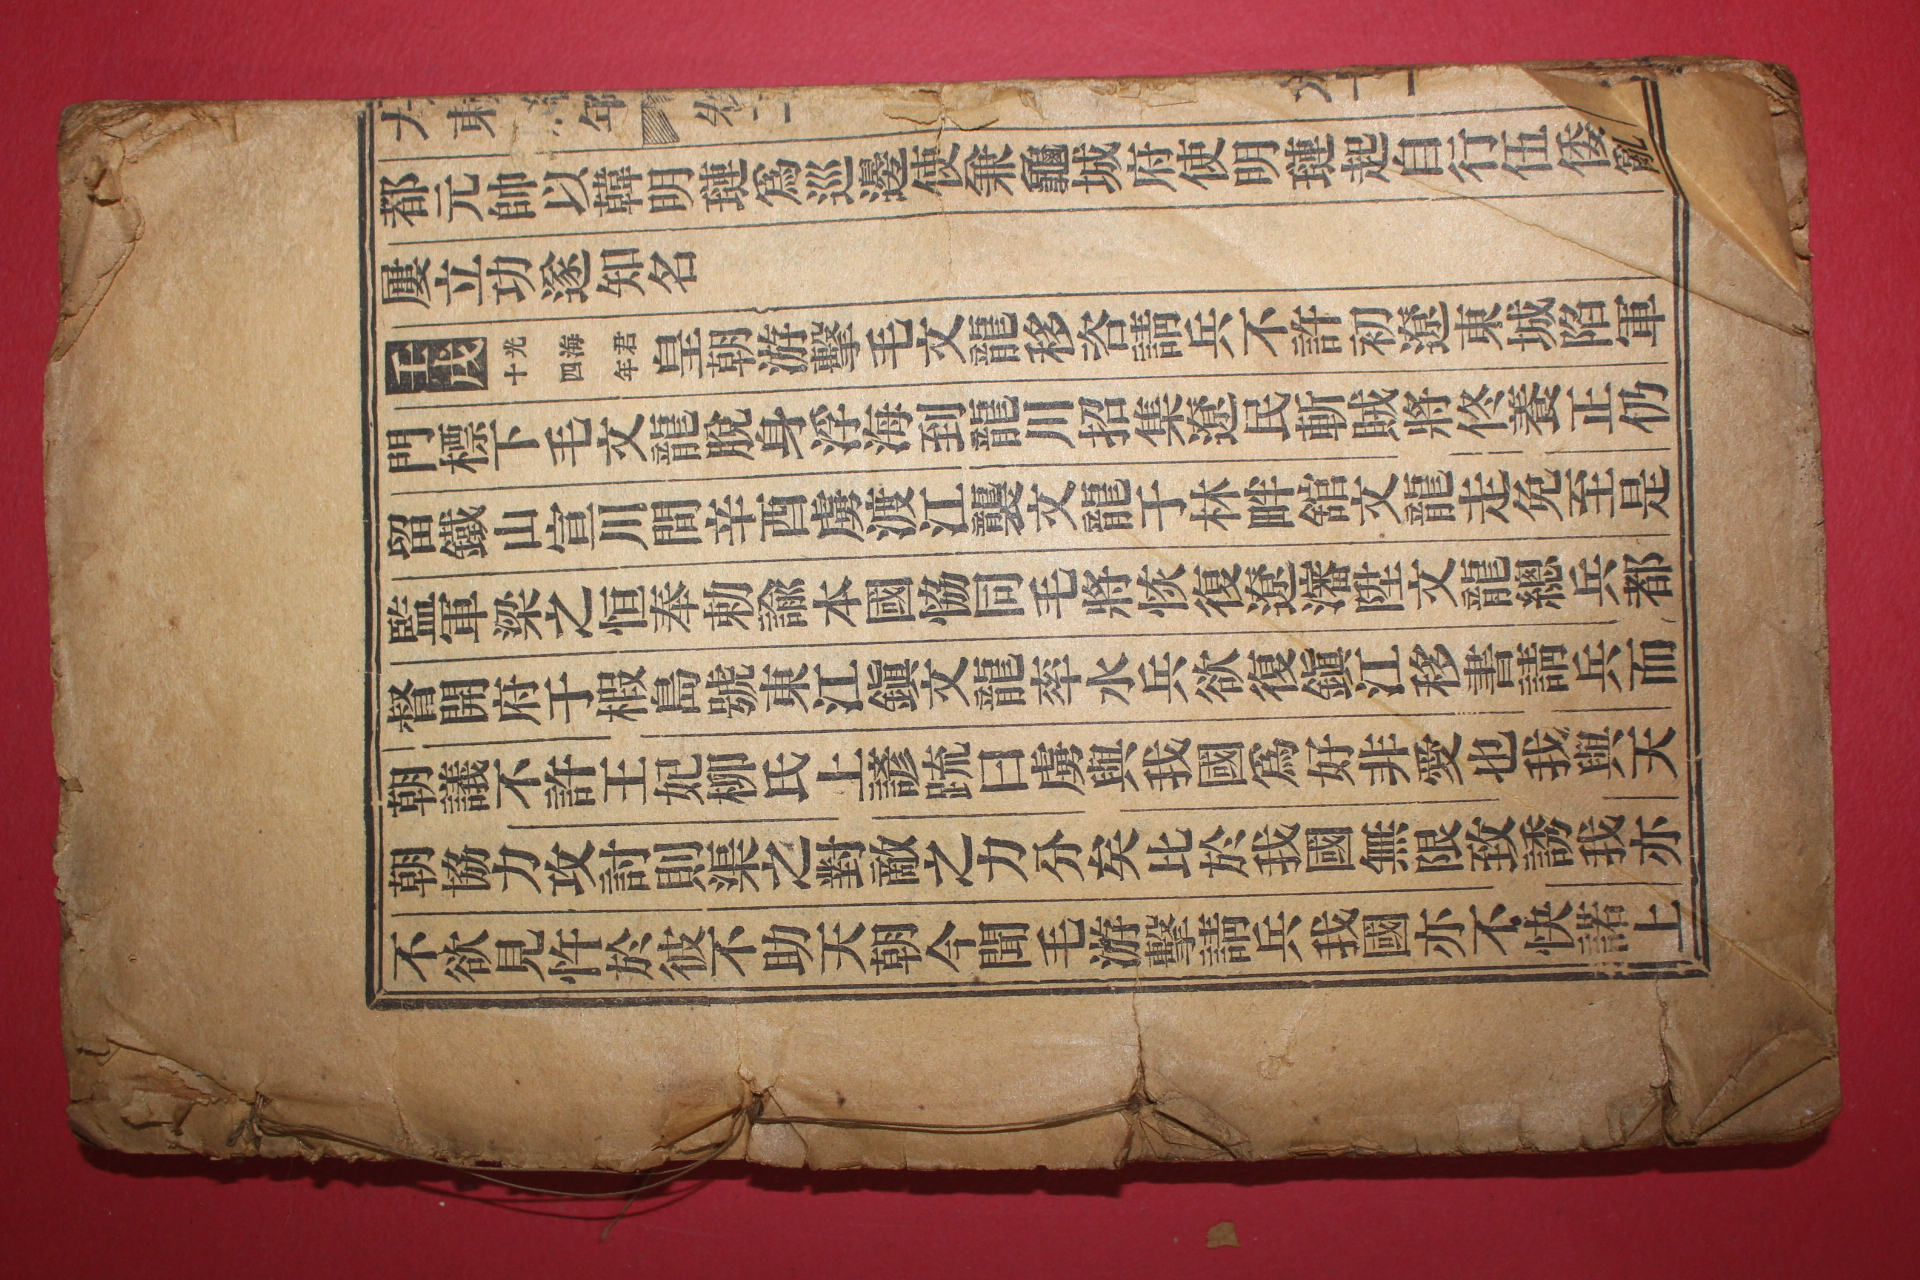 大東紀年 卷二 九十一
都元帥以韓明璉爲巡邊使兼龜城府使明璉起自行伍倭亂
屢立功遂知名
壬戌光海君十四年皇朝游擊毛文龍移咨請兵不許初遼東城陷軍
門標下毛文龍脫身浮海到龍川招集遼民斬賊將佟養正仍
留鐵山宣川間辛酉虜渡江襲文龍于林畔舘文龍走免至是
監軍梁之恒奉勅諭本國恊同毛將恢復遼瀋陞文龍總兵都
督開府于椵島號東江鎭文龍率水兵欲復鎭江移書請兵而
朝議不許王妃柳氏上諺䟽曰虜與我國爲好非愛也我與天
朝協力攻討則渠之對敵之力分矣比於我國無限致誘我亦
不欲見忤於彼不助天朝今聞毛游擊請兵我國亦不快諾上